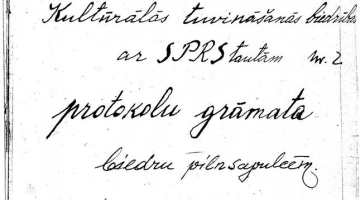 Kultūrālās tuvināšanās biedrības
ar SPRS tautām nr. 2
protokolu grāmata
biedru pilnsapulcēm.